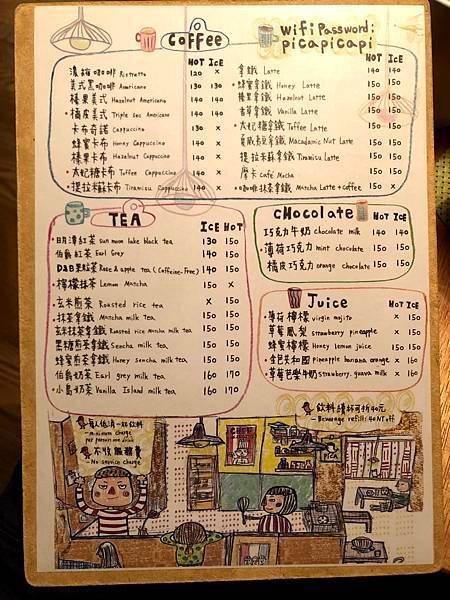 Coffee
wifi Password:
picapicapi
HOT ICE
濃縮咖啡 Ristretto 120 x
美式黑咖啡 Americano 130 130
榛果美式 Hazelnut Americano 140 140
•橘皮美式 Triple Sec Americano 140 140
卡布奇諾 Cappuccino 130 x
蜂蜜卡布 Honey Cappuccino 140 x
榛果卡布 Hazelnut Cappuccino 140 x
•太妃糖卡布 Toffee Cappuccino 140 x
•提拉米蘇卡布 Tiramisu Cappuccino 140 x
HOT ICE
拿鐵 Latte 140 140
•蜂蜜拿鐵 Honey Latte 150 150
榛果拿鐵 Hazelnut Latte 150 150
香草拿鐵 Vanilla Latte 150 150
•太妃糖拿鐵 Toffee Latte 150 150
夏威夷豆拿鐵 Macadamia Nut Latte 150 150
提拉米蘇拿鐵 Tiramisu Latte 150 150
摩卡 Café Mocha 150 150
•咖啡抹茶拿鐵 Matcha Latte + coffee 150 x
TEA
ICE HOT
日月潭紅茶 sun moon lake black tea 130 150
伯爵紅茶 Earl Grey 140 150
D&B果粒茶 Rose & apple tea (Caffeine-Free) 140 150
•檸檬抹茶 Lemon Matcha 150 x
玄米煎茶 Roasted rice tea x 150
抹茶拿鐵 Matcha milk tea 150 150
玄米抹茶拿鐵 Roasted rice Matcha milk tea 150 150
黑糖煎茶拿鐵 Sencha milk tea 150 150
蜂蜜煎茶拿鐵 Honey sencha milk tea 150 150
伯爵奶茶 Earl grey milk tea 160 170
•小島奶茶 Vanilla Island milk tea 160 170
CHocolate
HOT ICE
巧克力牛奶 chocolate milk 140 140
•薄荷巧克力 mint chocolate 150 150
橘皮巧克力 orange chocolate 150 150
Juice
HOT ICE
•薄荷檸檬 virgin mojito x 150
草莓鳳梨 strawberry pineapple x 150
蜂蜜檸檬 Honey lemon juice 150 150
•金芭夾桔 pineapple banana orange x 160
草莓芭樂牛奶 strawberry, guava milk x 160
飲料續杯可折40元
— Beverage refill: 40 NT off
每人低消一杯飲料
— minimum charge
per person one drink
不收服務費
— No service charge